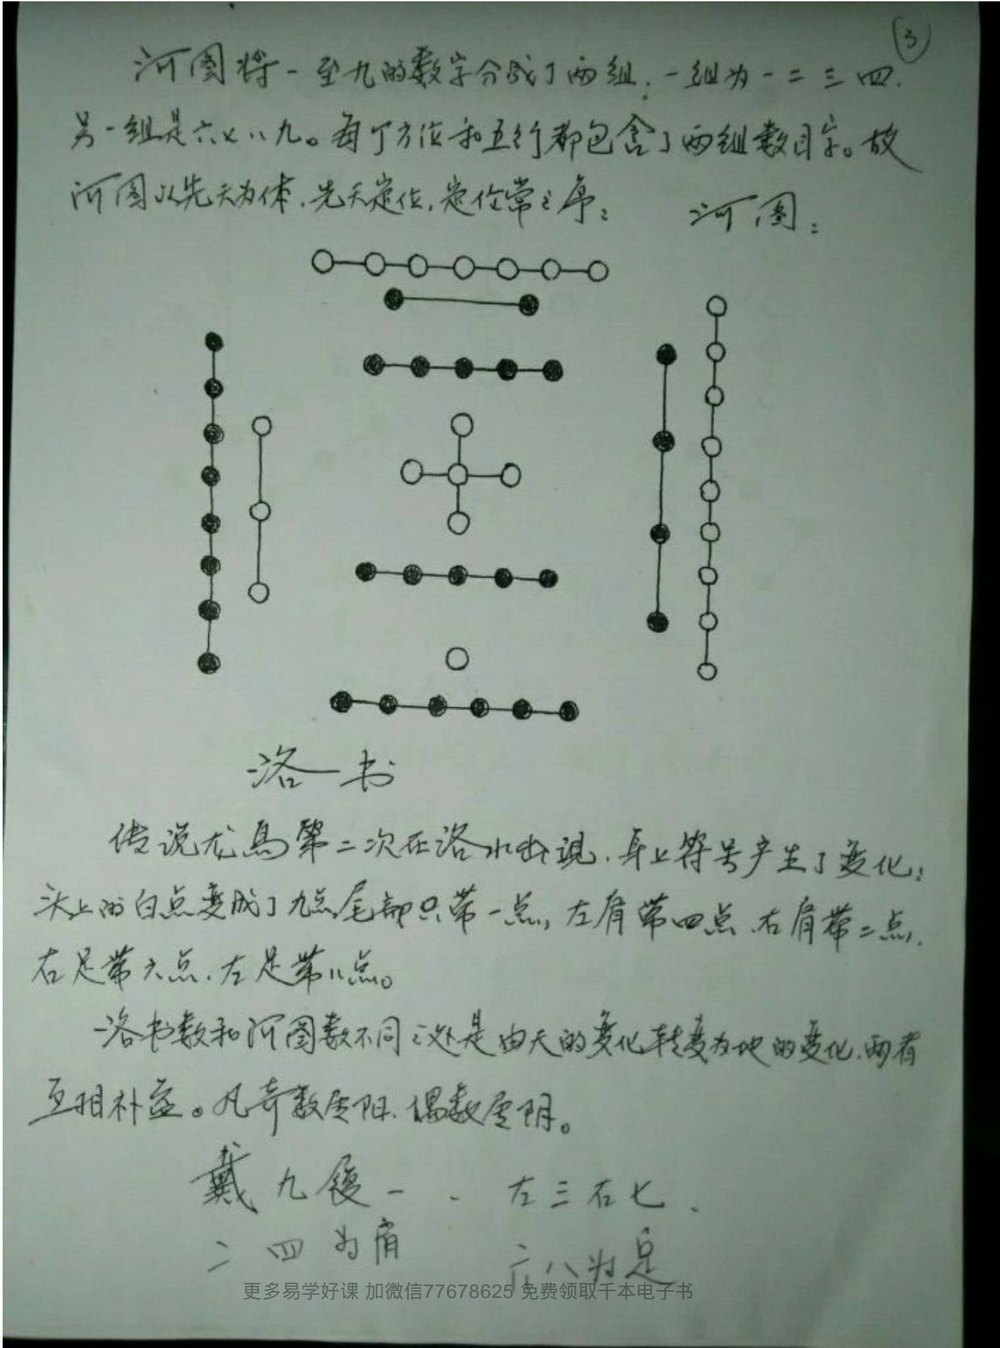 3
河图将一至九的数字分成了两组：一组为一二三四.
另一组是六七八九。每个方位和五行都包含了两组数目字。故
河图以先天为体.先天定位,定位常之序：  河图：
洛书
传说龙马第二次在洛水出现.身上符号产生了变化；
头上的白点变成了九点,尾部只带一点,左肩带四点.右肩带二点,
右足带六点.左足带八点。
洛书数和河图数不同之处是由天的变化转变为地的变化.两者
互相补益。凡奇数属阳.偶数属阴。
戴九履一. 左三右七.
二四为肩 六八为足
更多易学好课 加微信77678625 免费领取千本电子书